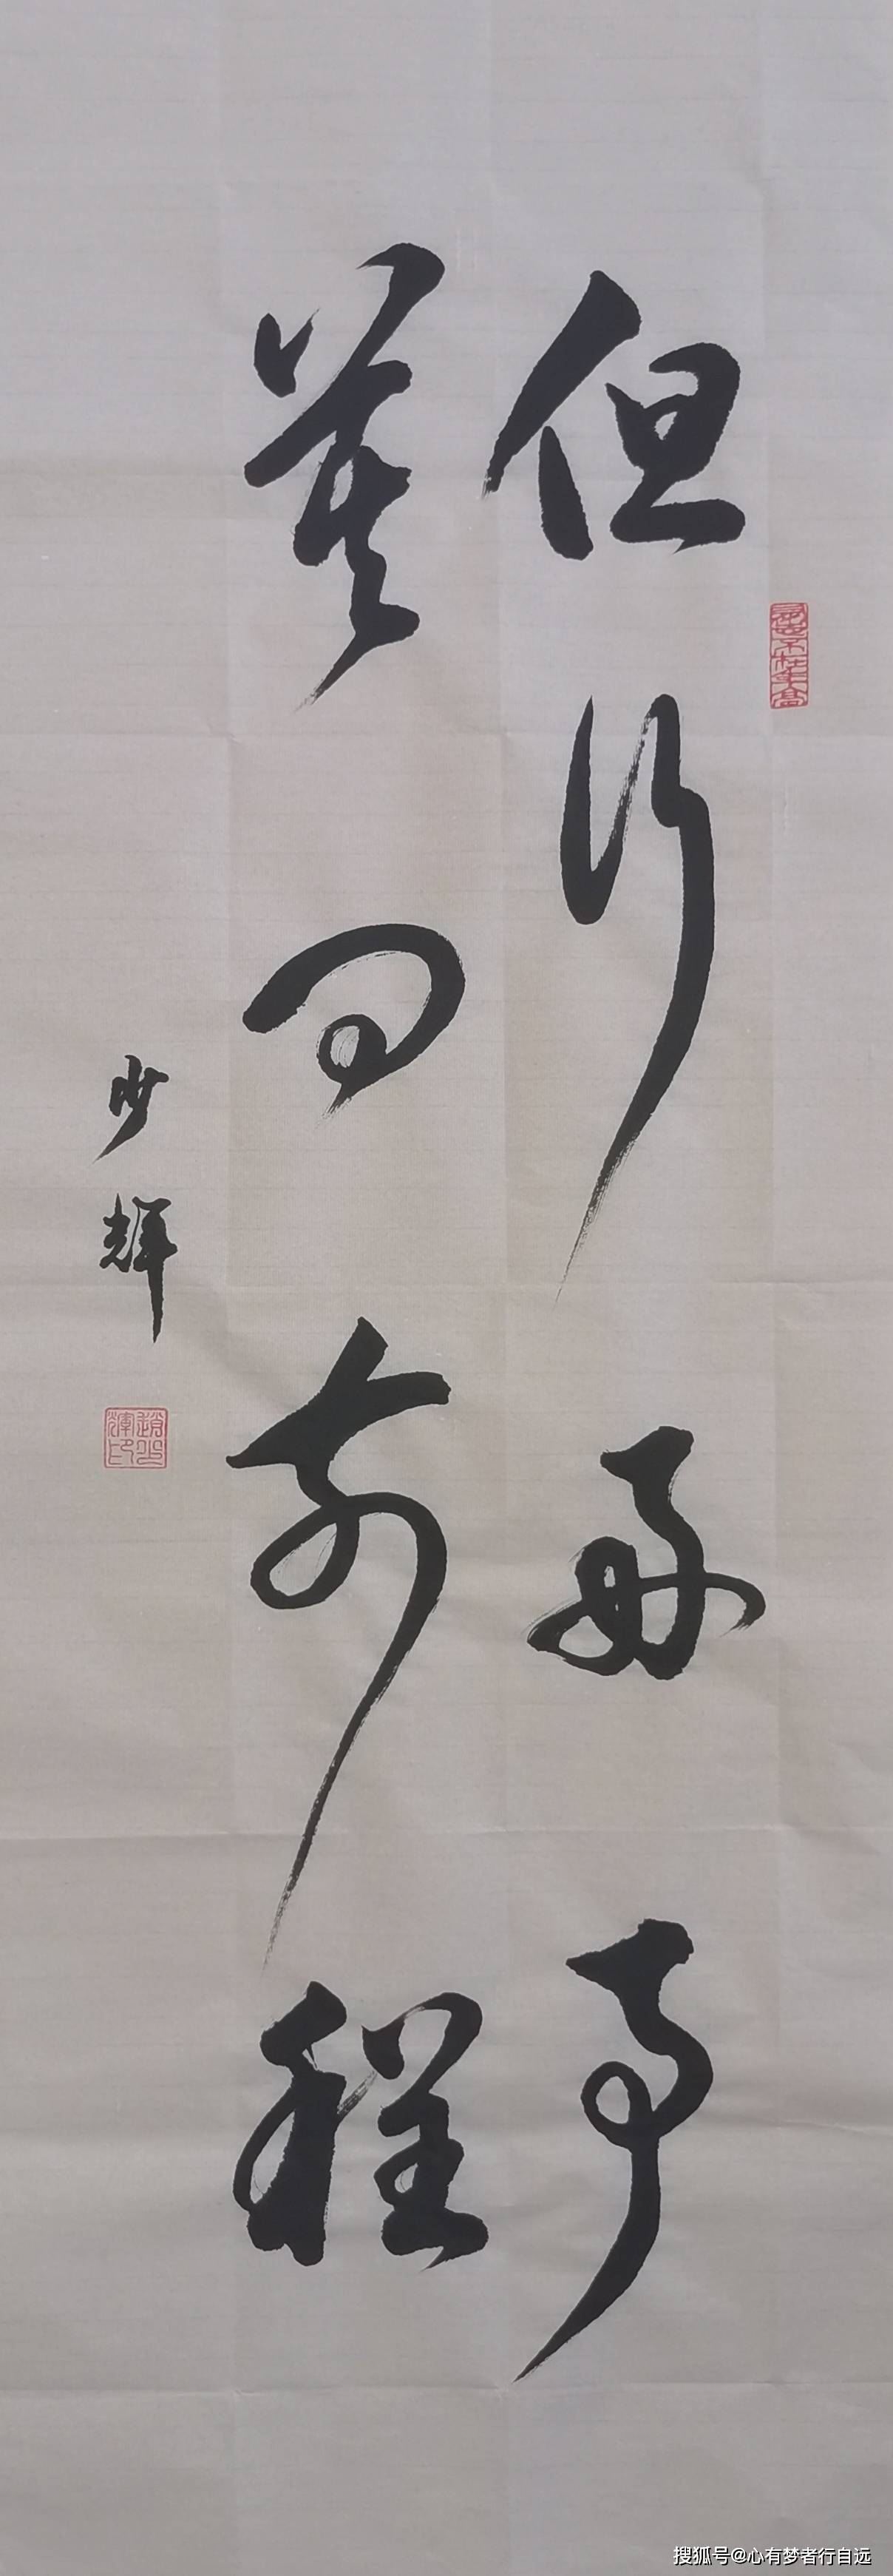 但行好事
莫问前程
少辉
搜狐号@心有梦者行自远